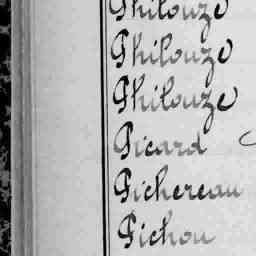 Philouze
Philouze
Philouze
Picard
Pichereau
Pichon